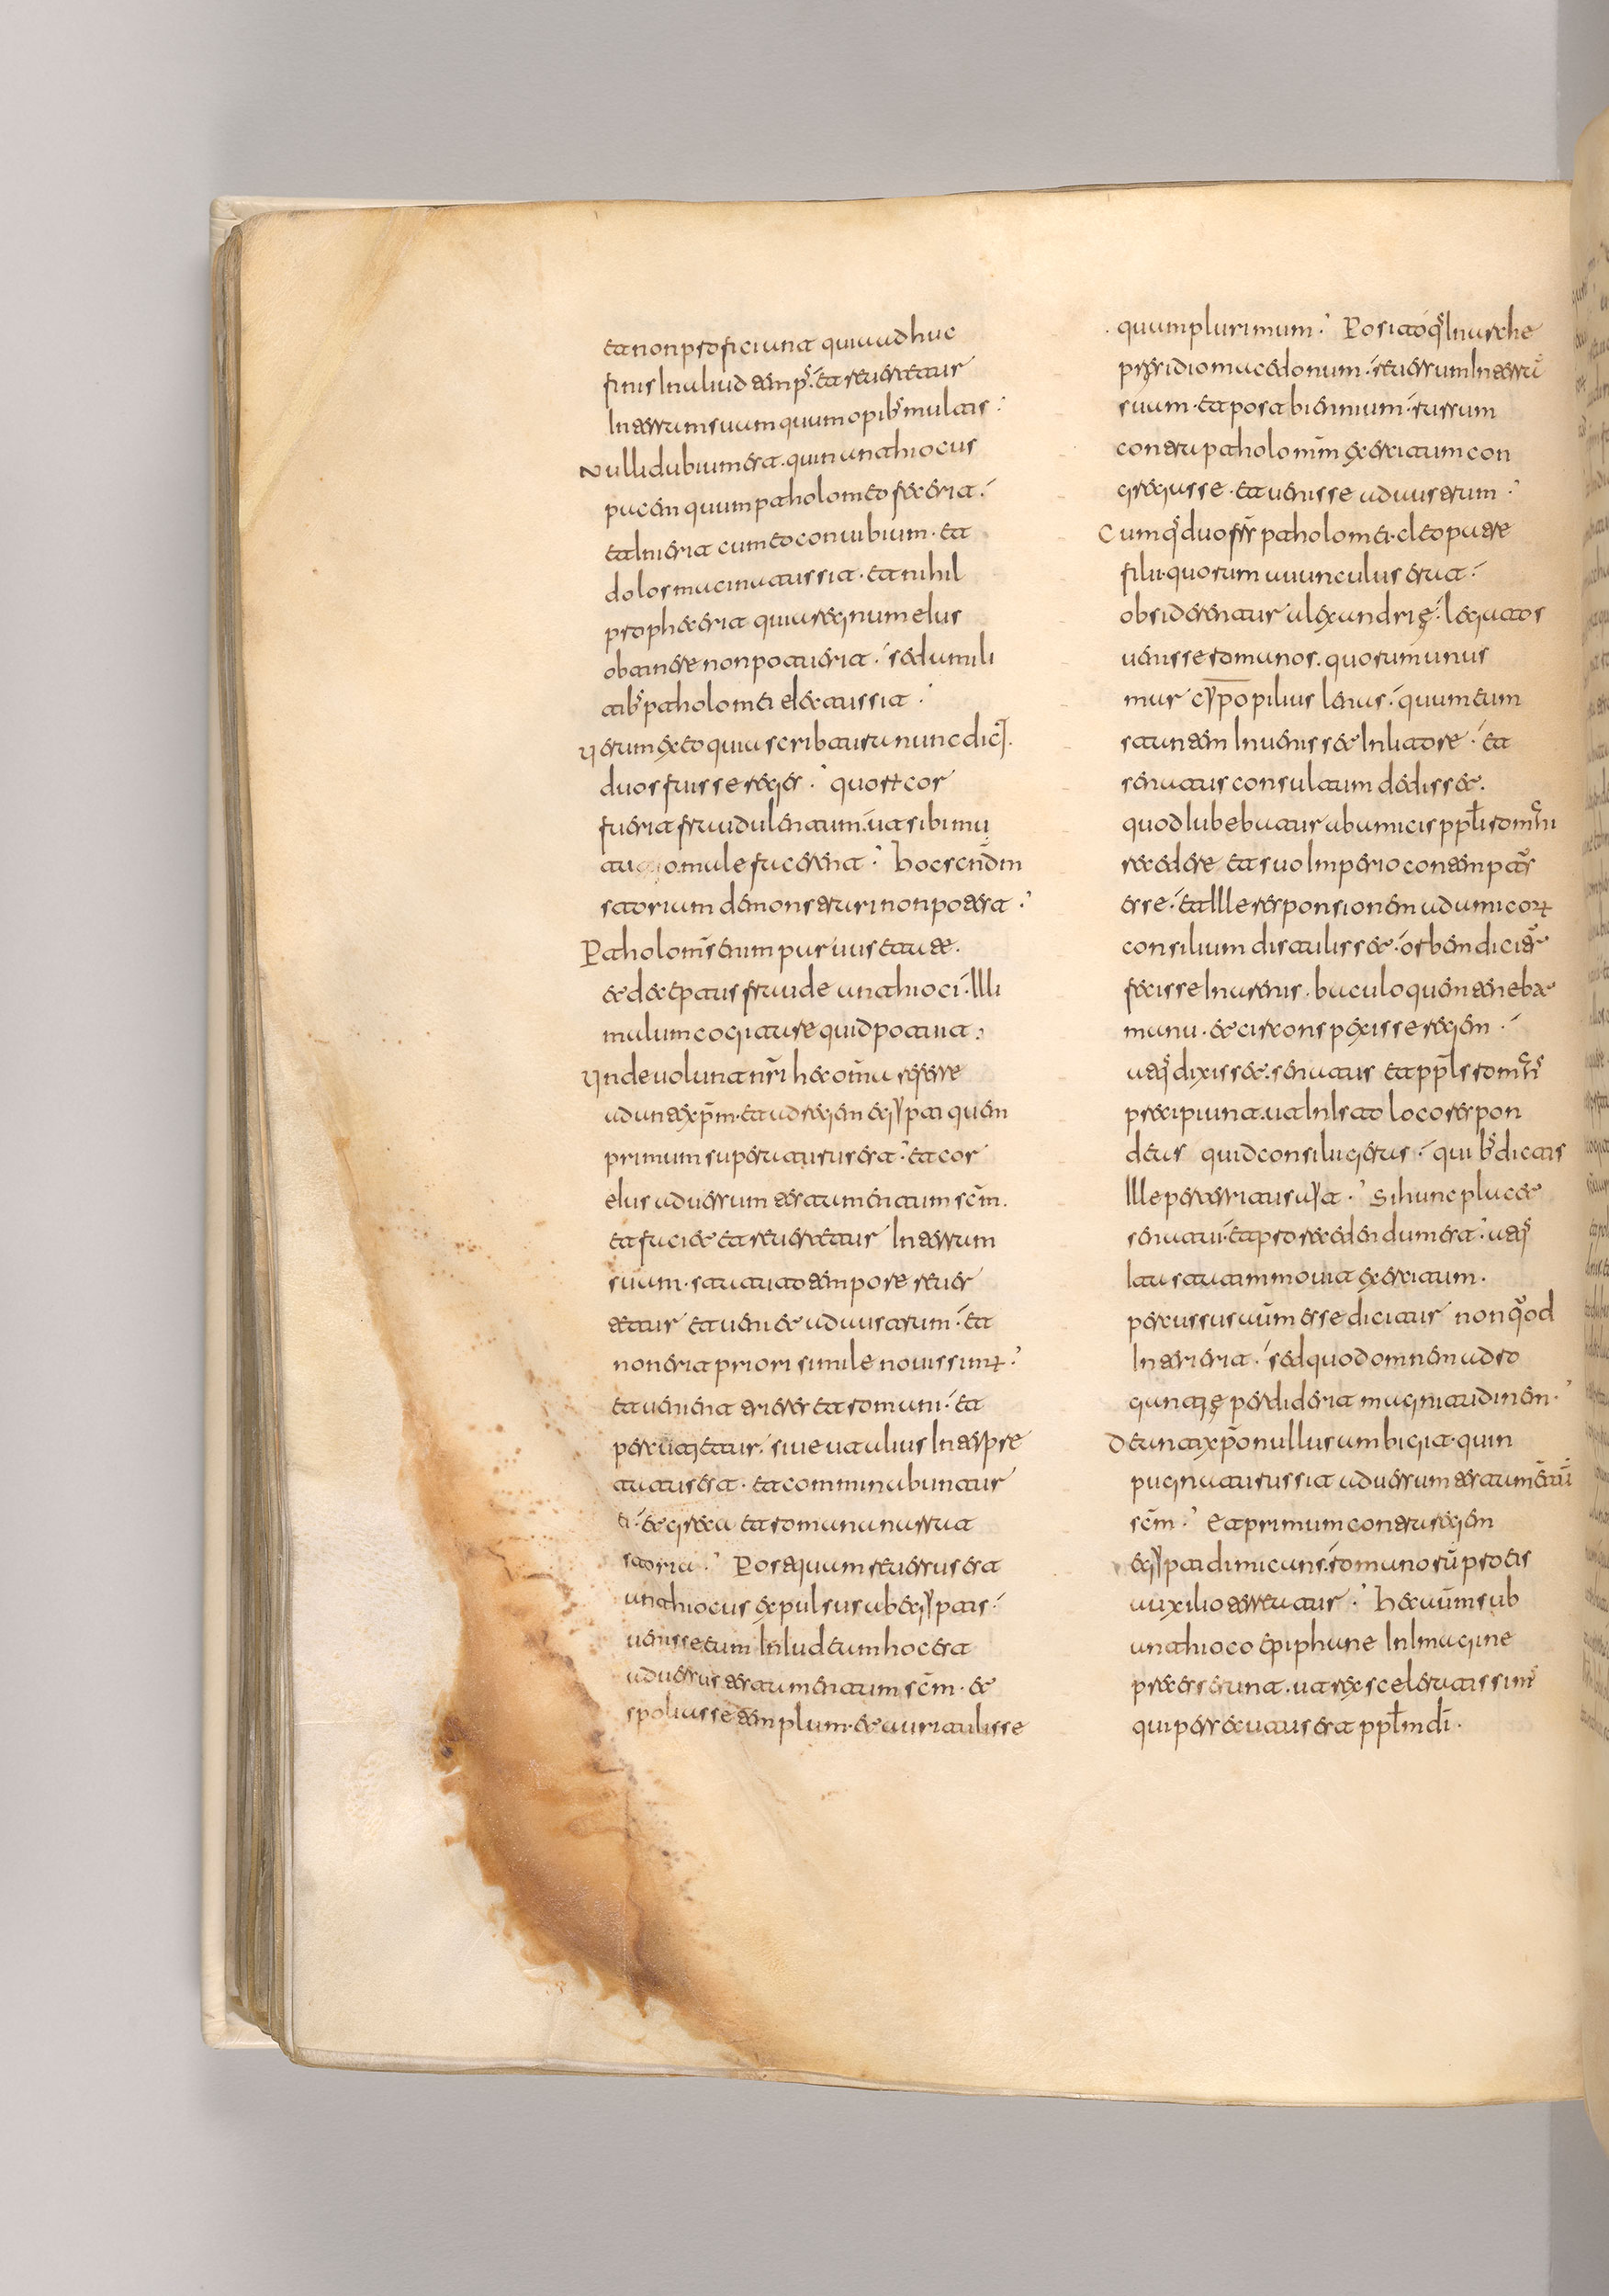 et non proficiunt quia adhuc
finis In aliud temps̄. et reuertetur
In terram suam quum opibs̄ multis.
Nulli dubium est. quin anthiocus
pacem quum ptholomeo fecerit.
et Inierit cum eo conuibium. et
dolos macinatus sit. et nihil
profecerit quia regnum eius
obtinere non potuerit. sed a mili
tibs̄ ptholomei eiectus sit.
Verum ex eo quia scribtura nunc dict̄.
duos fuisse reges. quorꝝ cor
fuerit fraudulentum. ut sibi mu
tuo male facerent. hoc scn̄dm
storium demonstrari non potest.
Ptholom̄s enim paruus etate.
et deceptus fraude anthioci. Illi
malum cogitare quid potuit.
Unde uolunt nr̄i hec om̄a referre
ad antexp̄m. et ad regem egypti quem
primum superaturus est. et cor
eius aduersum testamentum sc̄m.
et faciet et reuertetur In terram
suam. statuto tempore reuer
tetur et ueniet ad austrum. et
non erit priori simile nouissimꝝ.
et uenient trieres et romani. et
percutietur. siue ut alius Interpre
tatus est. et comminabuntur
ei. et greca et romana narrat
storia. Postquam reuersus est
anthiocus expulsus ab egyptis.
uenisse eum In Iudeam hoc est
aduersus testamentum sc̄m. et
spoliasse templum. et auri tulisse
quum plurimum. Positoqs̄ In arche
presidio macedonum. reuersum In terrā
suam. et post biennium. rursum
contra ptholomm̄ exercitum con
gregasse. et uenisse ad austrum.
Cumqs̄ duo frr̄ ptholomei. cleopatre
filii. quorum auunculus erat.
obsiderentur alexandrię. legatos
uenisse romanos. quorum unus
mar cyp̄o pilius lenas. quum eum
stantem Inuenisset In litore. et
senatus consultum dedisset.
quod Iubebatur ab amicis ppl̄i romn̄i
recedere et suo Imperio contemptꝰ
esse. et Ille responsionem ad amicorꝝ
consilium distulisset. orbem dicitꝰ
fecisse In arenis. baculo quem tenebat
manu. et circonspexisse regem.
atqs̄ dixisset. senatus et ppl̄s romn̄s
precipiunt. ut In Isto loco respon
deas quid consilii geras. quibs̄ dictis
Ille perterritus ait. Si hunc placet
senatui. et pro recedendum est. atqs̄
Ita statim mouit exercitum.
percussus aūm esse dicitur non quod
Interierit. sed quod omnem adro
gantię perdiderit magnitudinem.
De antixp̄o nullus ambigit. quin
pugnaturus sit aduersum testamētū
sc̄m. Et primum contra regem
egypti dimicans. romanorū pro eis
auxilio terreatur. hec aūm sub
anthioco epiphane In Imagine
precesserunt. ut rex sceleratissimꝰ
qui persecutus est ppl̄m dī.